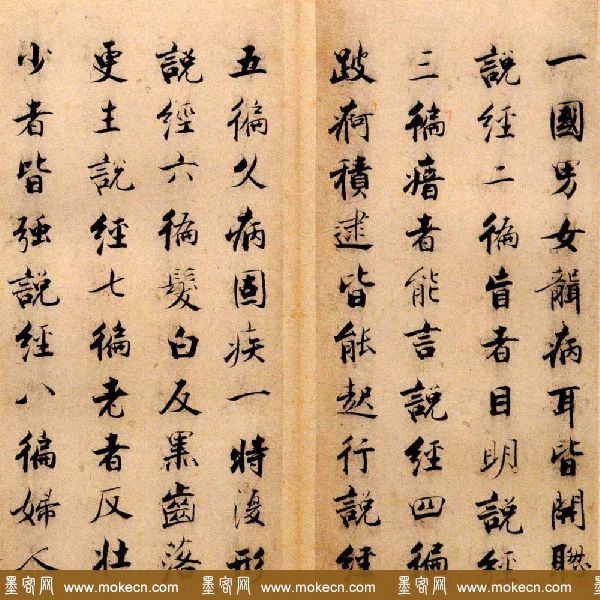 一國男女聾病耳皆開聰
說經二徧盲者目明說經
三徧瘖者能言說經四徧
跛痾積逮皆能起行說經
五徧久病固疾一時復形
說經六徧髮白反黑齒落
更生說經七徧老者反壯
少者皆强說經八徧婦人
墨客网 www.mokecn.com 墨客网 www.mokecn.com 墨客网 www.mokecn.com